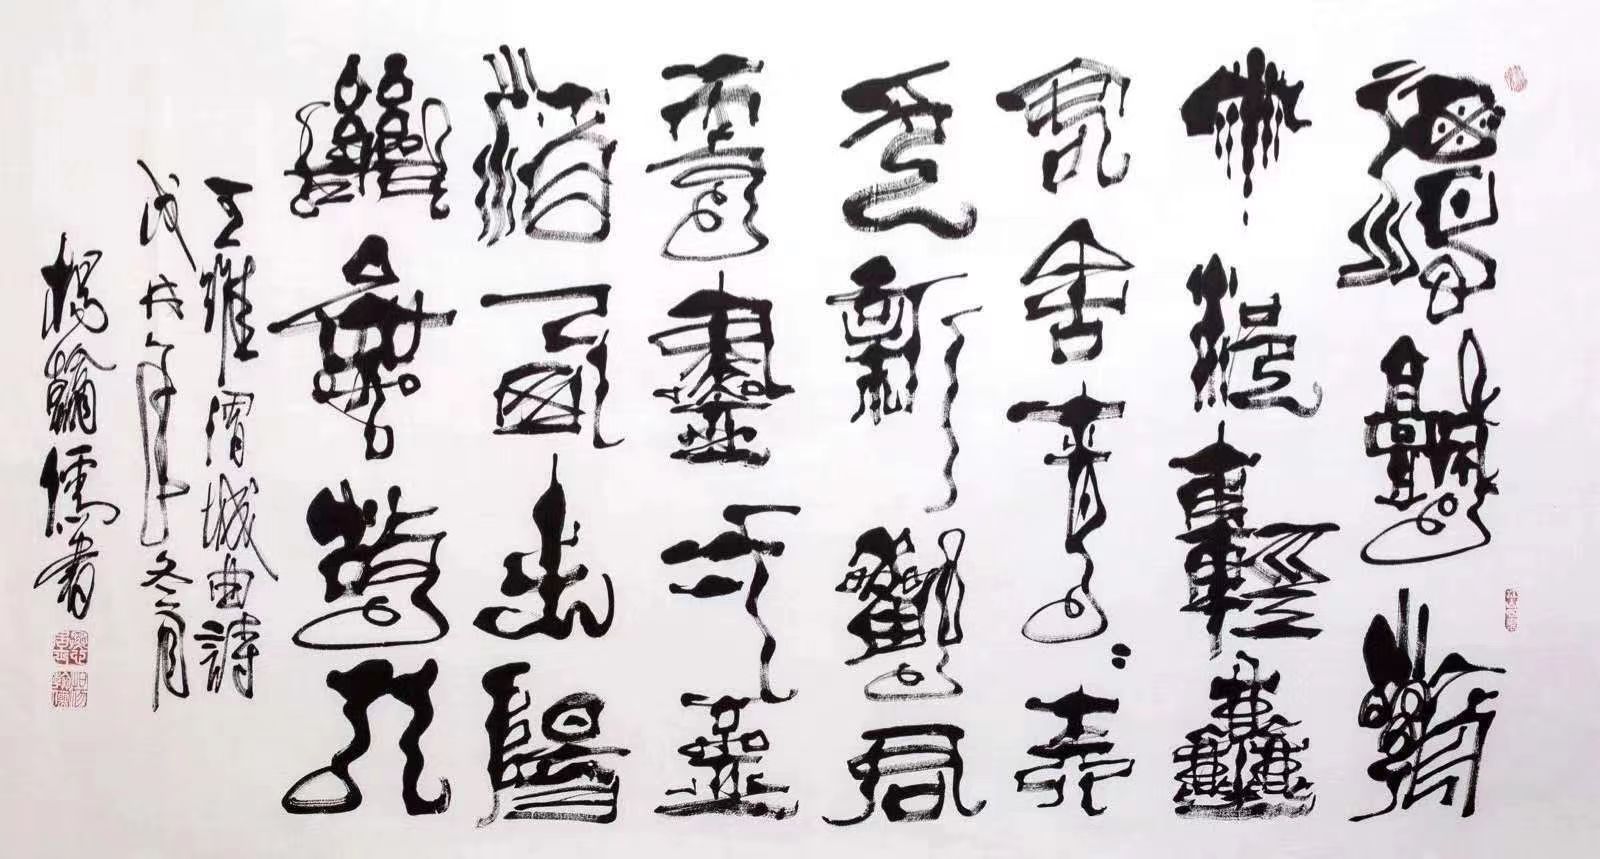 渭城朝
雨浥輕塵
客舍青〻柳
色新勸君
更盡一杯
酒西出陽
關無故人
王維渭城曲詩
戊戌年冬月
楊翰儒書